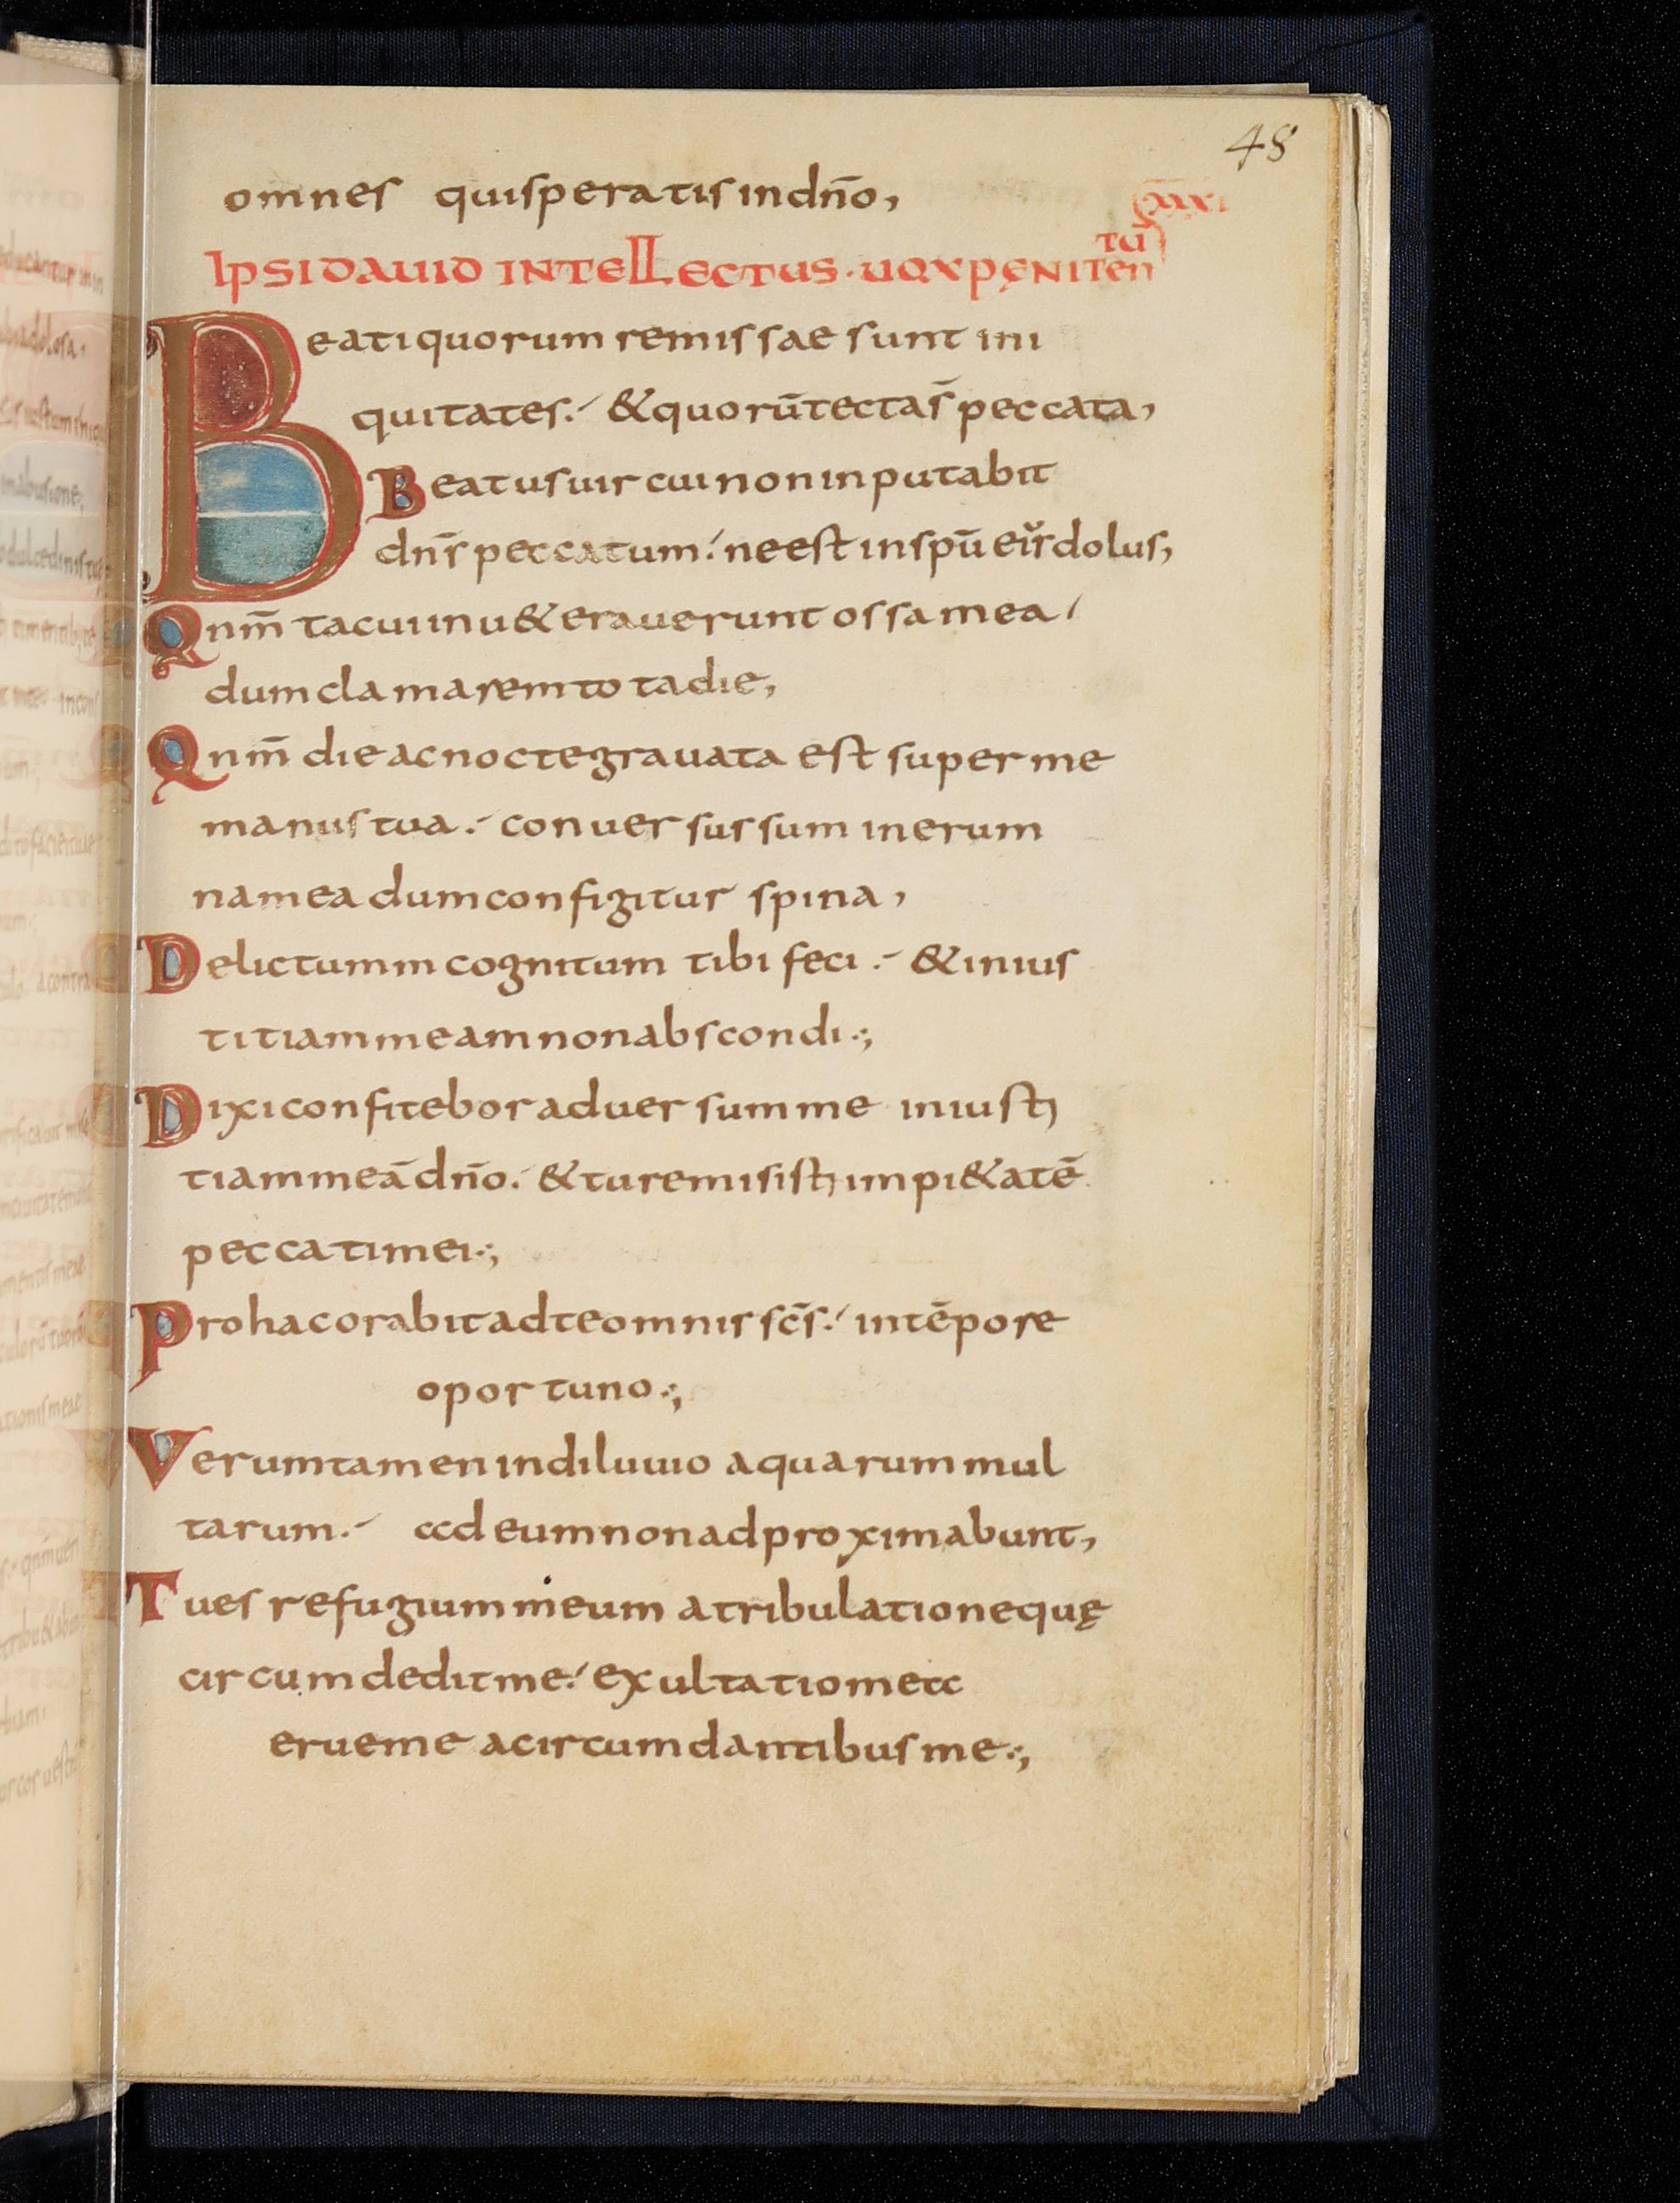 48
omnes quisperatisindn̄o,
xxxi
tū
IPSIDAVID INTELLECTUS·UOXPĘNITEN
Beatiquorumremissae sunt ini
quitates:´ &quorūtectas̄peccata,
Beatusuircuinoninputabit
dn̄speccatum:´neestinspūeiꝰdolus,
Qnm̄ tacuiinu&erauerunt ossamea/
dumclamaremtotadie,
Qnm̄ dieacnoctegrauata est superme
manustua:´ conuersussum inerum
nameadumconfigitur spina,
Delictummcognitum tibi feci:´ &inius
titiammeamnonabscondi:,
Dixiconfiteboraduersumme iniusti
tiammeādn̄o:´ &turemisistiimpi&atē
peccatimei:,
Prohacorabitadteomnis sc̄s:´ intēpore
oportuno:,
Verumtamenindiluuio aquarummul
tarum:´ adeumnonadproximabunt,
Tues refugiummeum atribulationequę
circumdeditme:´ exultatiomea
erueme acircumdantibusme:,